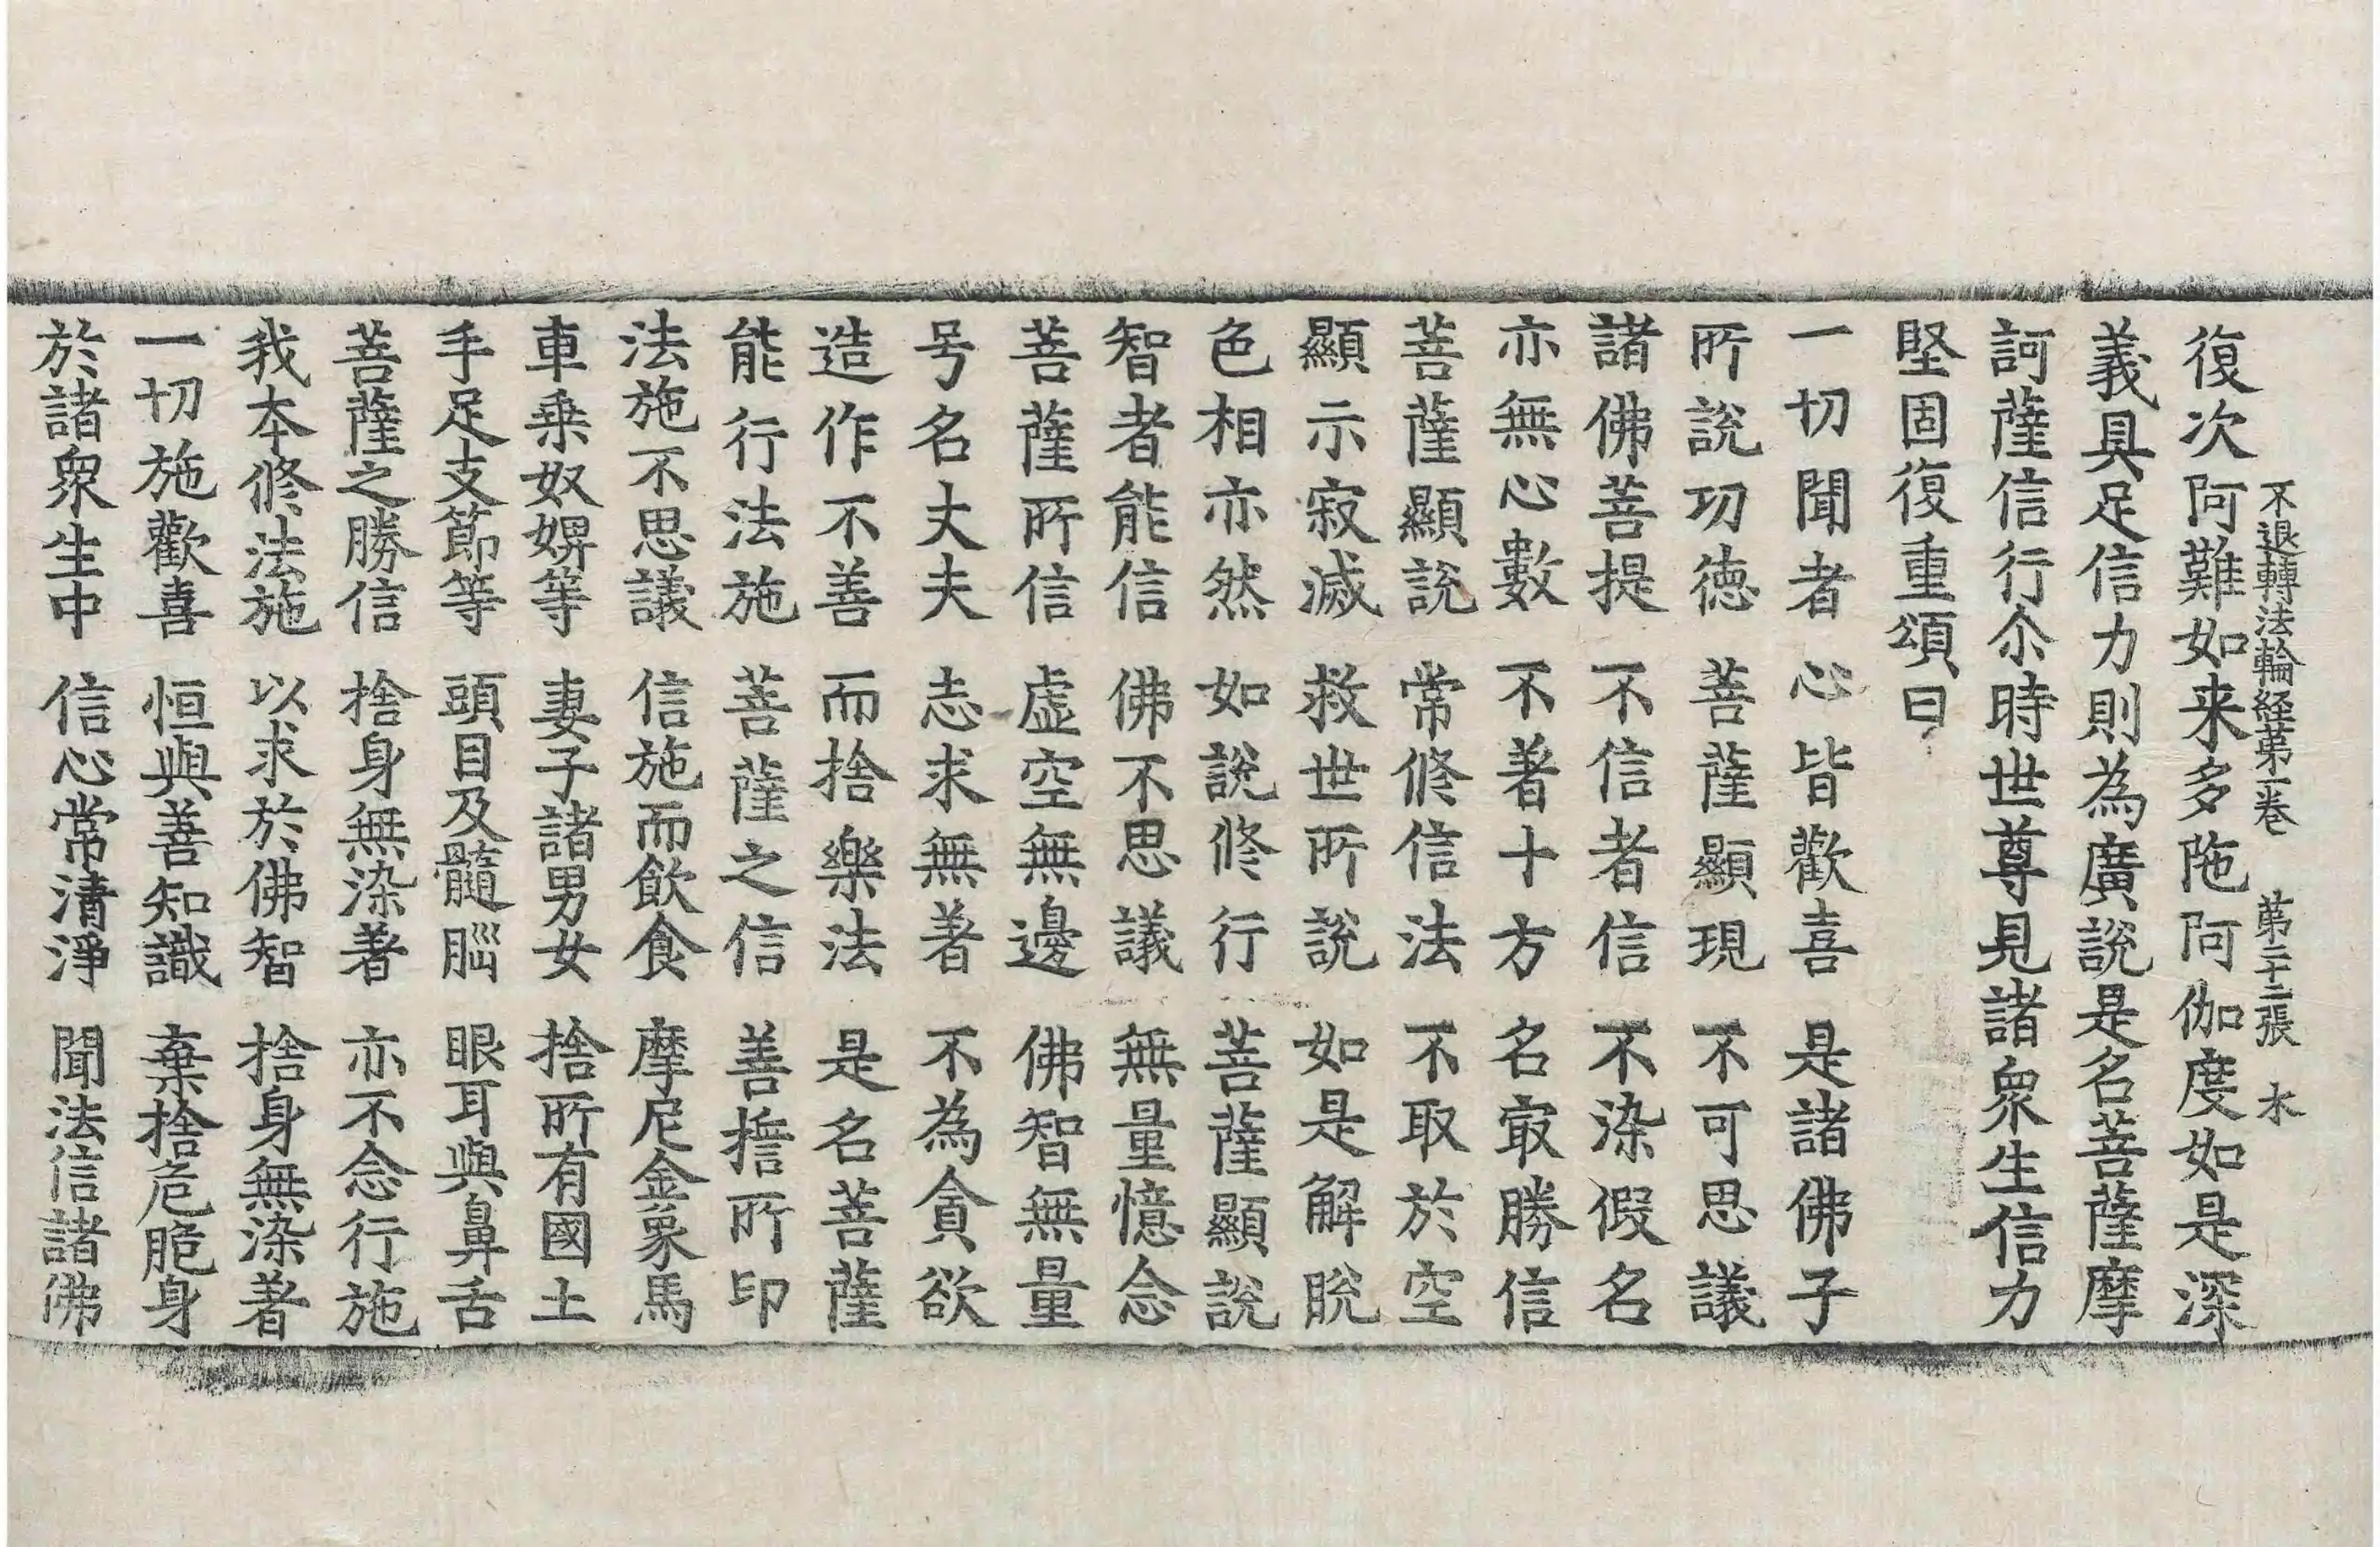 不退轉法輪経苐一卷 苐二十二張 木
復次阿難如来多陁阿伽度如是深
義具足信力則為廣說是名菩薩摩
訶薩信行尒時世尊見諸衆生信力
堅固復重頌曰
一切聞者心皆歡喜是諸佛子
所說功徳菩薩顯現不可思議
諸佛菩提不信者信不染假名
亦無心數不著十方名㝡勝信
菩薩顯說常修信法不取於空
顯示寂滅救世所說如是解脫
色相亦然如說修行菩薩顯說
智者能信佛不思議無量憶念
菩薩所信虛空無邊佛智無量
号名丈夫志求無著不為貪欲
造作不善而捨樂法是名菩薩
能行法施菩薩之信善攇所印
法施不思議信施而飲食摩尼金象馬
車乗奴婢等妻子諸男女捨所有國土
手足支節等頭目及髓腦眼耳與鼻舌
菩薩之勝信捨身無染著亦不念行施
我本修法施以求於佛智捨身無染著
一切施歡喜恒與善知識棄捨危脆身
於諸衆生中信心常清淨聞法信諸佛